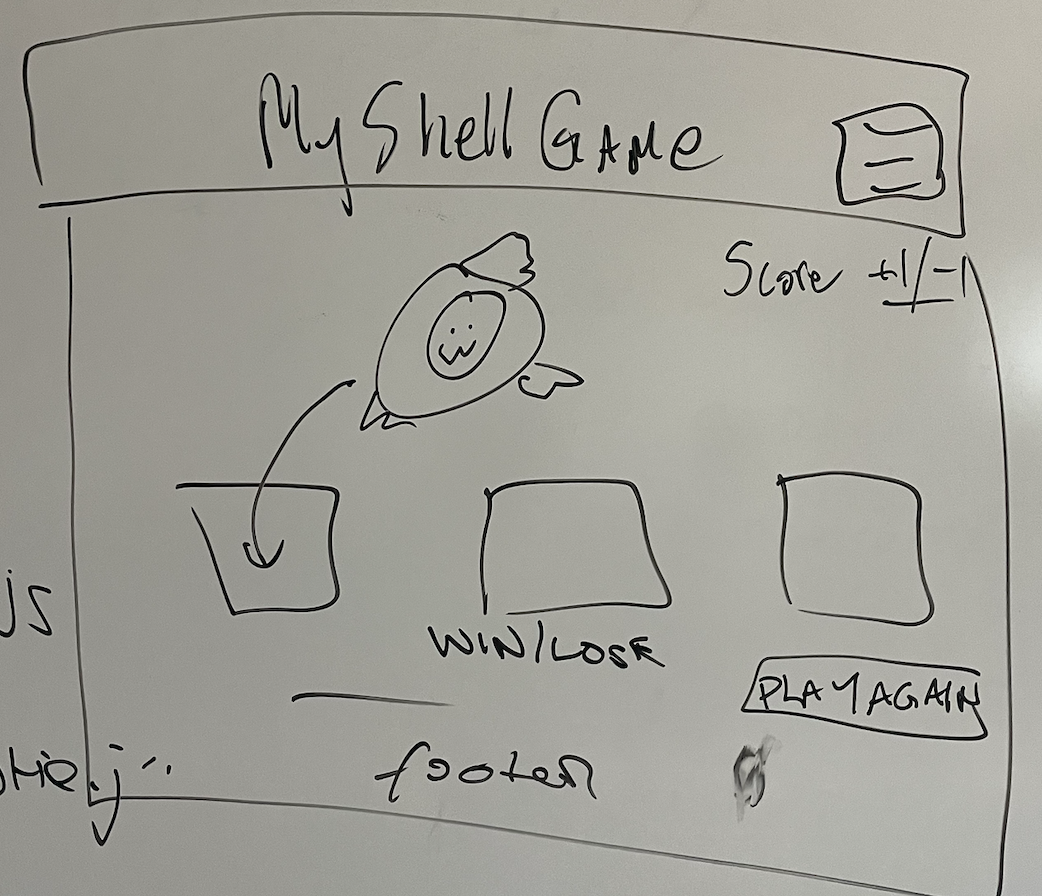 My Shell Game
Score +1/-1
js
WIN/LOSE
PLAY AGAIN
footer